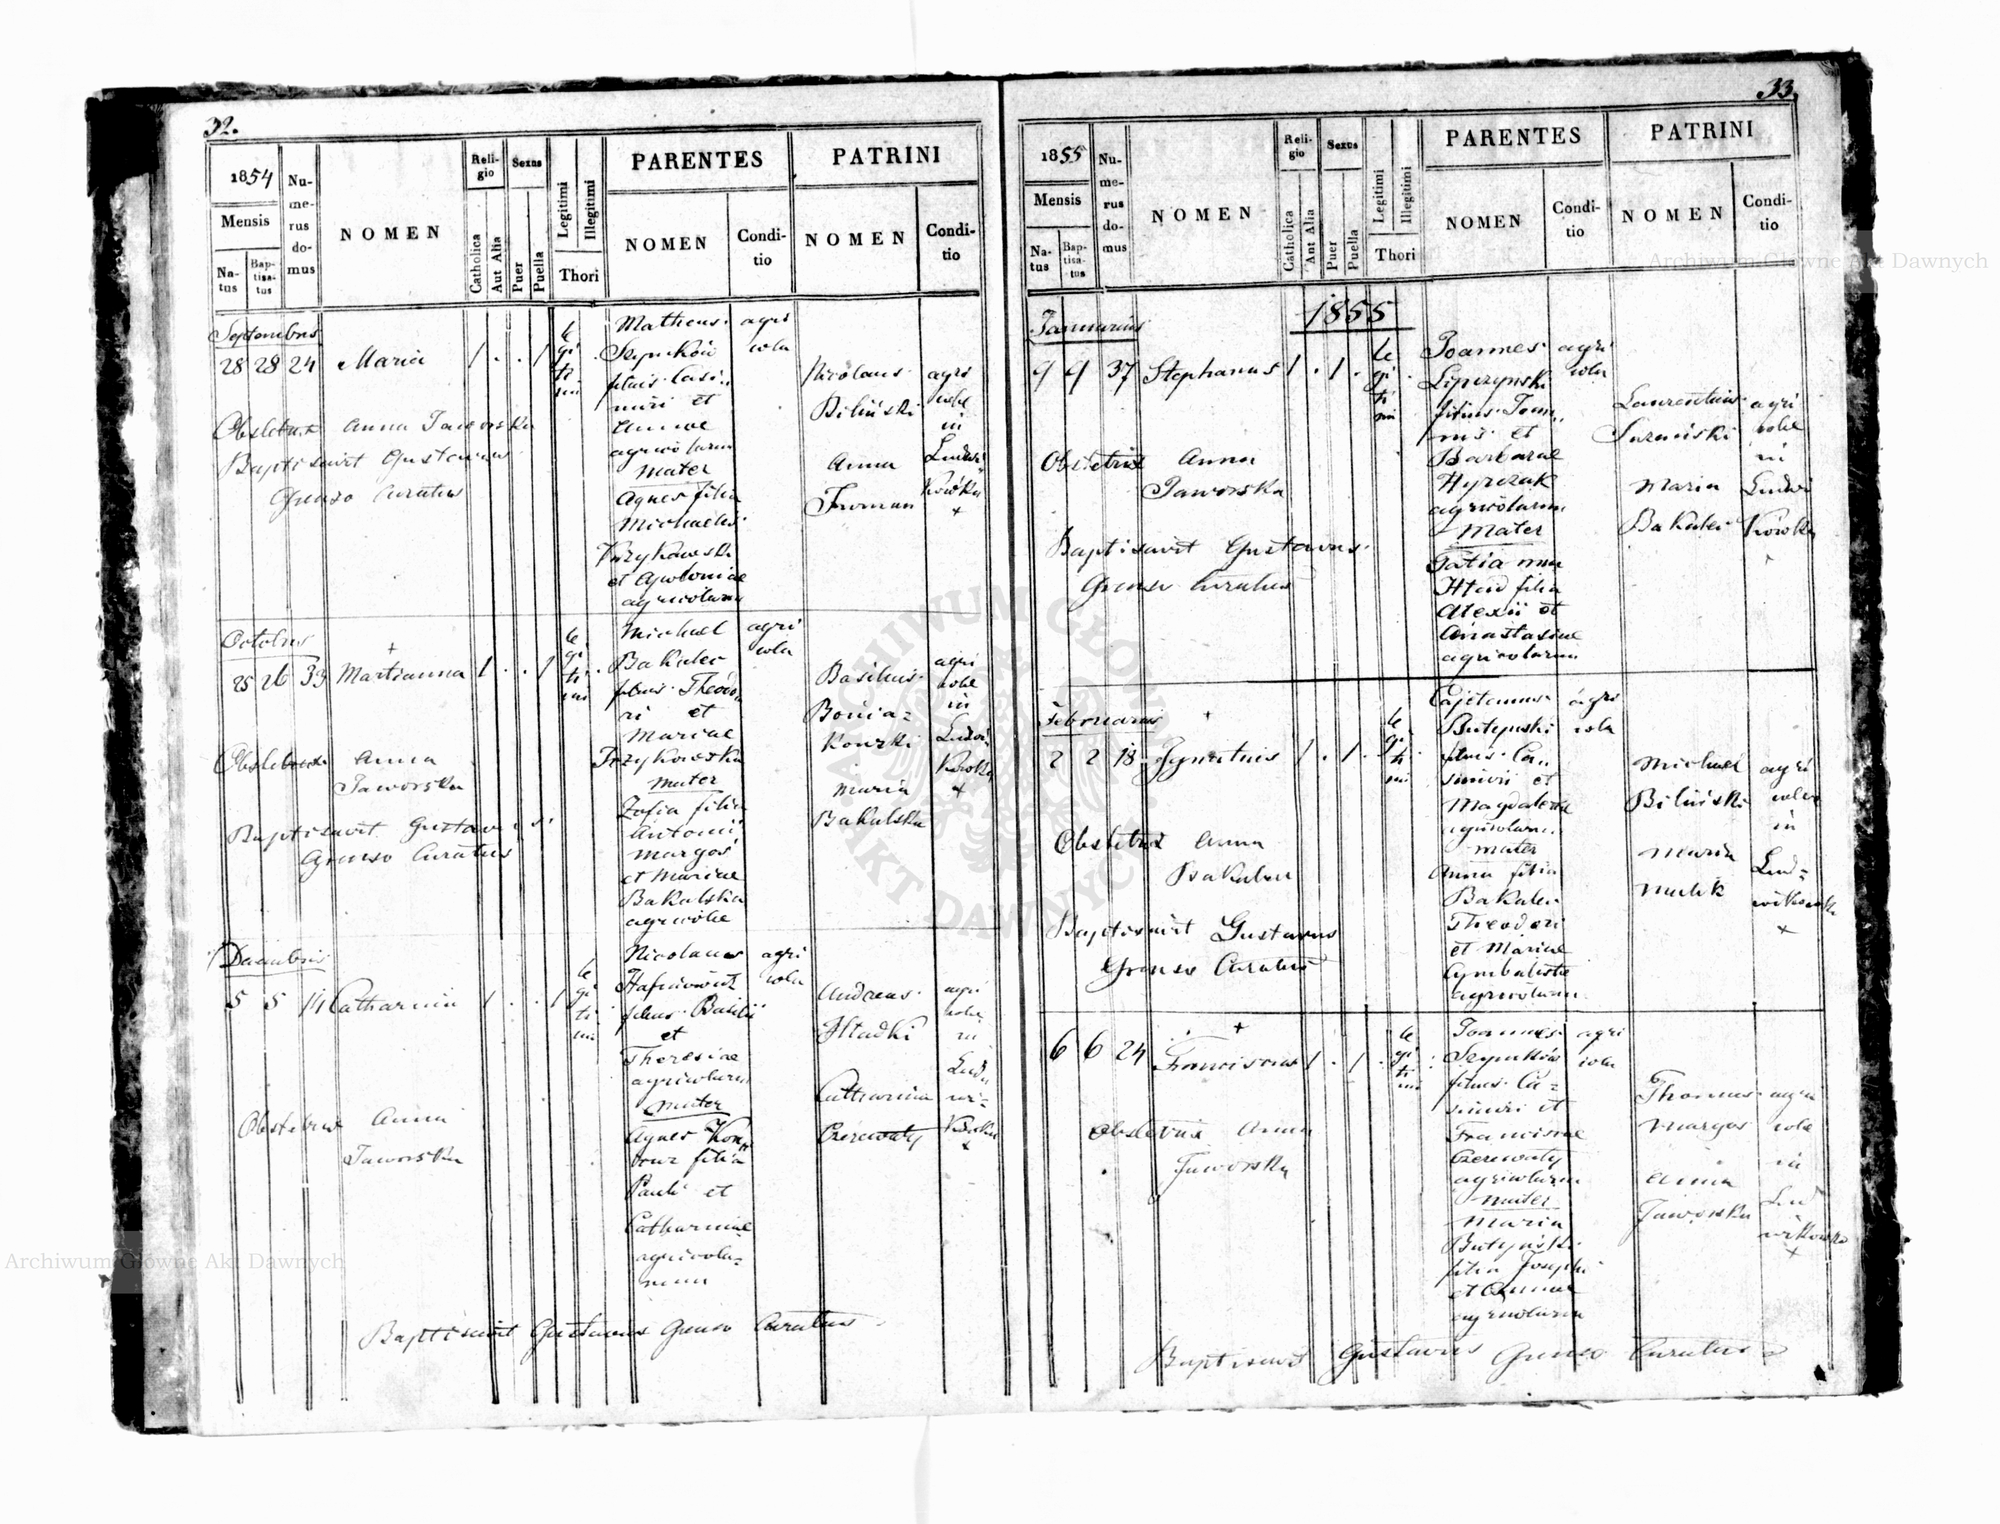 32.
1854
Mensis
Na-
tus
Bap-
tisa-
tus
Nu-
me-
rus
do-
mus
NOMEN
Reli-
gio
Catholica
Aut Alia
Sexus
Puer
Puella
Legitimi
Illegitimi
Thori
PARENTES
NOMEN
Condi-
tio
PATRINI
NOMEN
Condi-
tio
Septembris
28 28 24 Maria 1 . . 1
le
gi
ti
mi
Matheus
Szynków
filius Casi
miri et
Annae
agricolarum
Mater
Agnes filia
Michaelis
et Apoloniae
agricolarum
agri
cola
Nicolaus
Biliński
Anna
Furman
agri
colae
in
Ludwi
kówka
+
Obstetrix Anna Jaworska
Baptisavit Gustavus
Grenso Curatus
Octobris
+
25 26 33 Martianna 1 . . 1
le
gi
ti
mi
Michael
Bakalec
filius Theodo
ri et
Mariae
Mater
Zofia filia
Antonii
Margos
et Mariae
Bakalska
agricolae
agri
cola
Basilius
Bonia=
Maria
Bakalska
agri
colae
in
Ludwi
kówka
+
Obstetrix Anna
Jaworska
Baptisavit Gustavus
Grenso Curatus
Decembris
5 5 14 Catharina 1 . . 1
le
gi
ti
mi
Nicolaus
filius Basilii
et
Theresiae
agricolarum
Mater
Agnes
filia
Pauli et
Catharinae
agricola=
rum
agri
cola
Andreas
Hladki
Catharina
Czerewaty
agri
colae
in
Lud
wi=
kówka
+
Obstetrix Anna
Jaworska
Baptisavit Gustavus Grenso Curatus
33.
1855
Mensis
Na-
tus
Bap-
tisa-
tus
Nu-
me-
rus
do-
mus
NOMEN
Reli-
gio
Catholica
Aut Alia
Sexus
Puer
Puella
Legitimi
Illegitimi
Thori
PARENTES
NOMEN
Condi-
tio
PATRINI
NOMEN
Condi-
tio
1855
Januarius
9 9 37 Stephanus 1 . 1 .
le
gi
ti
mi
Joannes
Lipczynski
filius Joan
nis et
Barbarae
Hyrczak
agricolarum
Mater
Tatianna
filia
Alexii et
Anastasiae
agricolarum
agri
cola
Laurentius
Maria
Bakalec
agri
colae
in
Ludwi
kówka
+
Obstetrix Anna
Jaworska
Baptisavit Gustavus
Grenso Curatus
Februarius
+
2 2 18 Ignatius 1 . 1 .
le
gi
ti
mi
Cajetanus
Butynski
filius Ca
simiri et
Magdalena
agricolarum
Mater
Anna filia
Bakalec
Theodori
et Mariae
Cymbaliste
agricolarum
agri
cola
Michael
Biliński
Maria
Mulik
agri
colae
in
Lud=
wikowka
+
Obstetrix Anna
Bakalec
Baptisavit Gustavus
Grenso Curatus
+
6 6 24 Franciscus 1 . 1 .
le
gi
ti
mi
Joannes
Szynków
filius Ca=
simiri et
Francisca
Czerewaty
agricolarum
Mater
Maria
Butyński
filia Josephi
et Annae
agricolarum
agri
cola
Thomas
Margos
Anna
Jaworska
agri
colae
in
Lud
wikówka
+
Obstetrix Anna
Jaworska
Baptisavit Gustavus Grenso Curatus
ARCHIWUM GŁÓWNE AKT DAWNYCH
Archiwum Główne Akt Dawnych
Archiwum Główne Akt Dawnych